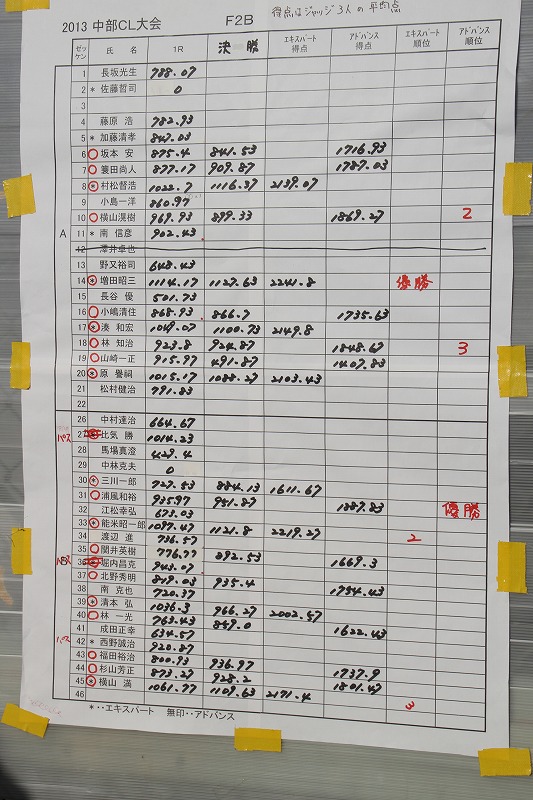 得点はジャッジ3人の平均点
2013 中部CL大会 F2B
ゼッケン 氏 名 1R 決 勝 エキスパート得点 アドバンス得点 エキスパート順位 アドバンス順位
A
1 長坂光生 788.07
2 * 佐藤哲司 0
3
4 藤原 浩 782.93
5 * 加藤清孝 847.03
6 坂本 安 875.4 841.53 1716.93
7 簑田尚人 877.17 909.87 1787.03
8 * 村松督浩 1022.7 1116.37 2139.07
9 小島一洋 860.97
10 横山滉樹 969.93 899.33 1869.27 2
11 * 南 信彦 902.43
12 澤井卓也
13 野又裕司 648.43
14 * 増田昭三 1114.17 1127.63 2241.8 優勝
15 長谷 優 501.73
16 小嶋清住 868.93 866.7 1735.63
17 * 湊 和宏 1049.07 1100.73 2149.8
18 林 知治 923.8 924.87 1848.67 3
19 山崎一正 915.97 491.87 1407.83
20 * 原 誉嗣 1015.17 1088.27 2103.43
21 松村健治 791.83
22
B
26 中村達治 664.67
パス 27 * 比気 勝 1014.23
28 馬場真澄 429.4
29 中林克夫 0
30 * 三川一郎 727.53 884.13 1611.67
31 浦風和裕 935.97 951.87 1887.83 優勝
32 江松幸弘 673.03
33 * 能米昭一郎 1097.47 1121.8 2219.27 2
34 渡辺 進 736.57
35 関井英樹 776.77 892.53 1669.3
パス 36 堀内昌克 943.07
37 北野秀明 819.03 935.4 1754.43
38 南 克也 720.37
39 * 清本 弘 1036.3 966.27 2002.57
40 林 一光 763.43 859.0 1622.43
41 成田正幸 634.57
パス 42 * 西野誠治 920.87
43 福田裕治 800.93 936.97 1737.9
44 杉山芳正 873.27 928.2 1801.47
45 * 横山 満 1061.77 1109.63 2171.4 3
46
*・・エキスパート 無印・・アドバンス